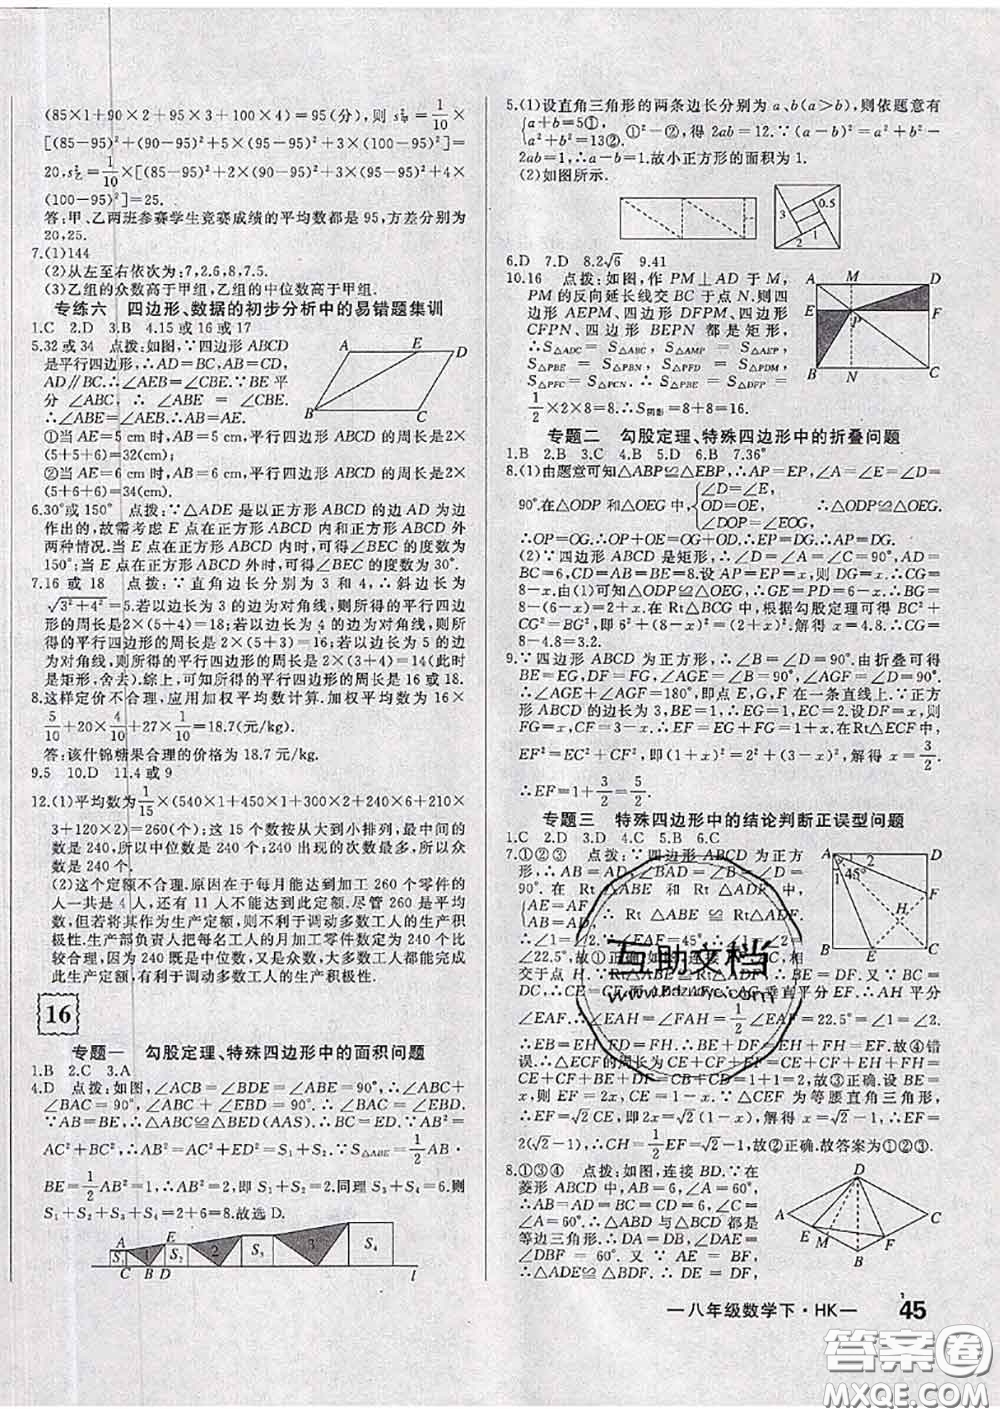 (85×1+90×2+95×3+100×4)=95(分),则s²甲=1/10×
[(85-95)²+(90-95)²+4×(95-95)²+3×(100-95)²]=
20,s²乙=1/10×[(85-95)²+2×(90-95)²+(95-95)²+4×
(100-95)²]=25.
答:甲、乙两班参赛学生竞赛成绩的平均数都是95,方差分别为
20,25.
7.(1)144
(2)从左至右依次为:7,2.6,8,7.5.
(3)乙组的众数高于甲组,乙组的中位数高于甲组.
专练六 四边形、数据的初步分析中的易错题集训
1.C 2.D 3.B 4.15或16或17
5.32或34 点拨:如图,∵四边形ABCD
是平行四边形,∴AD=BC,AB=CD,
AD∥BC.∴∠AEB=∠CBE.∵BE平
分∠ABC,∴∠ABE=∠CBE.
∴∠ABE=∠AEB.∴AB=AE.
①当AE=5 cm时,AB=5 cm,平行四边形ABCD的周长是2×
(5+5+6)=32(cm);
②当AE=6 cm时,AB=6 cm,平行四边形ABCD的周长是2×
(5+6+6)=34(cm).
6.30°或150° 点拨:∵△ADE是以正方形ABCD的边AD为边
作出的,故需考虑E点在正方形ABCD内和正方形ABCD外
两种情况.当E点在正方形ABCD内时,可得∠BEC的度数为
150°;当E点在正方形ABCD外时,可得∠BEC的度数为30°.
7.16或18 点拨:∵直角边长分别为3和4,∴斜边长为
√(3²+4²)=5.若以边长为3的边为对角线,则所得的平行四边
形的周长为2×(5+4)=18;若以边长为4的边为对角线,则所
得的平行四边形的周长为2×(5+3)=16;若以边长为5的边
为对角线,则所得的平行四边形的周长为2×(3+4)=14(此时
是矩形,舍去).综上,可知所得的平行四边形的周长是16或18.
8.这样定价不合理,应用加权平均数计算.加权平均数为16×
5/10+20×4/10+27×1/10=18.7(元/kg).
答:该什锦糖果合理的价格为18.7元/kg.
9.5 10.D 11.4或9
12.(1)平均数为1/15×(540×1+450×1+300×2+240×6+210×
3+120×2)=260(个);这15个数按从大到小排列,最中间的
数是240,所以中位数是240;240出现的次数最多,所以众
数是240.
(2)这个定额不合理.原因在于每月能达到加工260个零件的
人一共是4人,还有11人不能达到此定额.尽管260是平均
数,但若将其作为生产定额,则不利于调动多数工人的生产积
极性.生产部负责人把每名工人的月加工零件数定为240个比
较合理,因为240既是中位数,又是众数,大多数工人都能完成
此生产定额,有利于调动多数工人的生产积极性.
16
专题一 勾股定理、特殊四边形中的面积问题
1.B 2.C 3.A
4.D 点拨:如图,∠ACB=∠BDE=∠ABE=90°,∴∠ABC+
∠BAC=90°,∠ABC+∠EBD=90°.∴∠BAC=∠EBD.
∵AB=BE,∴△ABC≌△BED(AAS).∴BC=ED.∵AB²=
AC²+BC²,∴AB²=AC²+ED²=S₁+S₂.∵S△ABE=1/2AB·
BE=1/2AB²=1,∴AB²=2,即S₁+S₂=2.同理S₃+S₄=6.则
S₁+S₂+S₃+S₄=2+6=8.故选D.
A E S₁ 1 S₂ 2 S₃ 3 S₄
C B D l
5.(1)设直角三角形的两条边长分别为a、b(a>b),则依题意有
{a+b=5①,
a²+b²=13②,①²-②,得2ab=12.∵(a-b)²=a²+b²-
2ab=1,∴a-b=1.故小正方形的面积为1.
(2)如图所示.
3 0.5 1 2
6.D 7.D 8.2√6 9.41
10.16 点拨:如图,作PM⊥AD于M,
PM的反向延长线交BC于点N.则四
边形AEPM、四边形DFPM、四边形
CFPN、四边形BEPN都是矩形,
∴S△ADC=S△ABC,S△AMP=S△AEP,
S△PBE=S△PBN,S△PFD=S△PDM,
S△PFC=S△PCN,∴S△PBE=S△DFP=
1/2×2×8=8.∴S阴影=8+8=16.
专题二 勾股定理、特殊四边形中的折叠问题
1.B 2.B 3.C 4.B 5.D 6.B 7.36°
8.(1)由题意可知△ABP≌△EBP,∴AP=EP,∠A=∠E=
90°.在△ODP和△OEG中,{∠D=∠E,OD=OE,∠DOP=∠EOG, ∴△ODP≌△OEG.
∴OP=OG.∴OP+OE=OG+OD.∴EP=DG.∴AP=DG.
(2)∵四边形ABCD是矩形,∴∠D=∠A=∠C=90°,AD=
BC=6,CD=AB=8.设AP=EP=x,则DG=x.∴CG=
8-x.由(1)可知△ODP≌△OEG,∴PD=GE=6-x.∴BG=
8-(6-x)=2+x.在Rt△BCG中,根据勾股定理可得BC²+
CG²=BG²,即6²+(8-x)²=(2+x)².解得x=4.8.∴CG=
8-4.8=3.2.
9.∵四边形ABCD为正方形,∴∠B=∠D=90°.由折叠可得
BE=EG,DF=FG,∠AGE=∠B=90°,∠AGF=∠D=90°.
∴∠AGE+∠AGF=180°,即点E,G,F在一条直线上.∵正方
形ABCD的边长为3,BE=1,∴EG=1,EC=2.设DF=x,则
FG=x,CF=3-x.∴EF=EG+FG=1+x.在Rt△ECF中,
EF²=EC²+CF²,即(1+x)²=2²+(3-x)².解得x=3/2.
∴EF=1+3/2=5/2.
专题三 特殊四边形中的结论判断正误型问题
1.C 2.D 3.D 4.C 5.B 6.C
7.①②③ 点拨:∵四边形ABCD为正方
形,∴AB=AD,∠BAD=∠B=∠D=
90°.在Rt△ABE和Rt△ADF中,
{AE=AF,AB=AD,∴Rt△ABE≌Rt△ADF.
∴∠1=∠2.∵∠EAF=45°,∴∠1=∠2
=22.5°,故①正确.
交于点H.∵
∠EAF.∴∠EAH=∠FAH=22.5°=∠1=∠2.∴
误.∴△ECF的周长为CE+CF+EF=CE+CF+EH+FH=
CE+BE+CF+DF=CB+CD=1+1=2,故③正确.设BE=
x,则EF=2x,CE=1-x.∵△CEF为等腰直角三角形,
∴EF=√2CE,即2x=√2(1-x),解得x=√2-1,∴EF=
2(√2-1).∴CH=1/2EF=√2-1,故②正确.故答案为①②③.
8.①③④ 点拨:如图,连接BD.∵在
菱形ABCD中,∠A=60°,
∴AB=AD=BC=CD,∠C=∠A
=60°.∴△ABD与△BCD都是
等边三角形.∴DA=DB,∠DAE=
∠DBF=60°.又∵AE=BF,
∴△ADE≌△BDF.∴DE=DF.
互助文档
—八年级数学下·HK— 45
答案圈
MXQE.COM